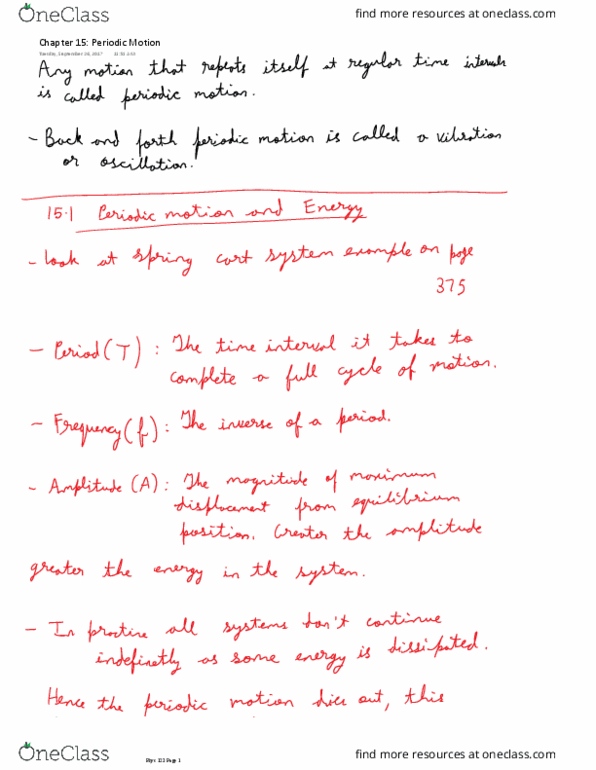 OneClass
find more resources at oneclass.com
Chapter 15: Periodic Motion
Tuesday, September 26, 2017
Any motion that repeats itself at regular time intervals
is called periodic motion.
- Back and forth periodic motion is called a vibration
or oscillation.
15.1 Periodic motion and Energy
- Look at spring cart system example on page
375
- Period (T) : The time interval it takes to
complete a full cycle of motion.
- Frequency (f) : The inverse of a period.
- Amplitude (A) : The magnitude of maximum
displacement from equilibrium
position. Greater the amplitude
greater the energy in the system.
- In practice all systems don't continue
indefinetly as some energy is dissipated.
Hence the periodic motion dies out, this
OneClass
Page 1
find more resources at oneclass.com